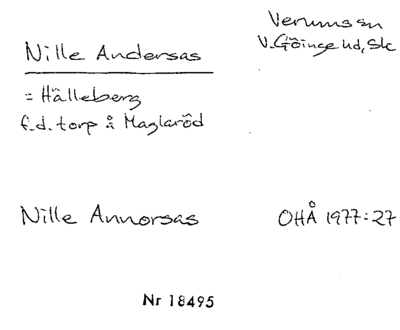 Nille Andersas
Verums sn
V. Göinge hd, Sk
= Hälleberg
f.d. torp å Maglaröd
Nille Annorsas
OHÅ 1977:27
Nr 18495